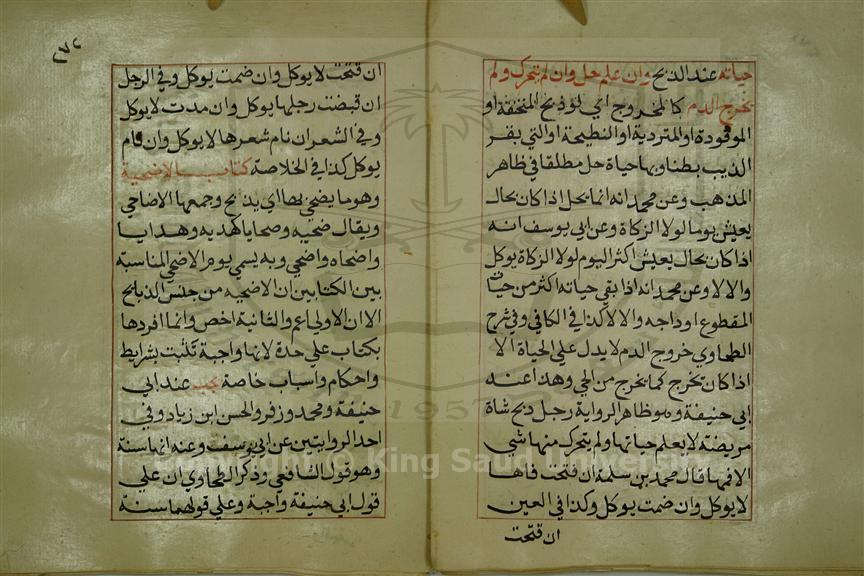 حياته عند الذبح وان علم حل وان لم تتحرك ولم
يخرج الدم كالمخروج اي لو ذبح المنخنقة او
الموقوذة او المتردية او النطيحة او التي بقر
الذيب بطنها وبها حياة حل مطلقا في ظاهر
المذهب وعن محمد انه انما يحل اذا كان بحال
يعيش يوما لولا الزكاة وعن ابي يوسف انه
اذا كان بحال يعيش اكثر اليوم لولا الزكاة يوكل
والا لا وعن محمد انه اذا بقي حياته اكثر من حيات
المقطوع اوداجه والا لا كذا في الكافي وفي شرح
الطحاوي خروج الدم لا يدل علي الحياة الا
اذا كان يخرج كما يخرج من الحي وهذا عنه
ابي حنيفة وهو ظاهر الرواية رجل ذبح شاة
مريضة لا يعلم حياتها ولم يتحرك منها شي
الا فمها قال محمد بن سلمة ان فتحت فاها
لا يوكل وان ضمت يوكل وكذا في العين
ان فتحت
٢٧٢
ان فتحت لا يوكل وان ضمت يوكل وفي الرجل
ان قبضت رجلها يوكل وان مدت لا يوكل
وفي الشعر ان نام شعرها لا يوكل وان قام
يوكل كذا في الخلاصة كتاب الاضحية
وهو ما يضحي بها اي يذبح وجمعها الاضاحي
ويقال ضحيه وضحايا كهديه وهدايا
واضحاه واضحي وبه يسمي يوم الاضحي المناسبة
بين الكتابين ان الاضحيه من جنس الذبائح
الا ان الاولي اعم والثانية اخص وانما افردها
بكتاب علي حدة لانها واجبة تثبت بشرايط
واحكام واسباب خاصة يجب عند ابي
حنيفة ومحمد وزفر والحسن ابن زياد وفي
احد الروايتين عن ابي يوسف وعنه انها سنة
وهو قول الشافعي وذكر الطحاوي ان علي
قول ابي حنيفة واجبة وعلي قولهما سنة